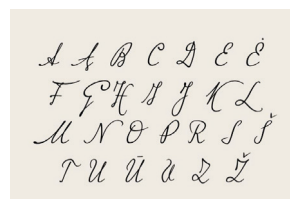 A Ą B C D E Ė
F G H I J K L
M N O P R S Š
T U Ū V Z Ž